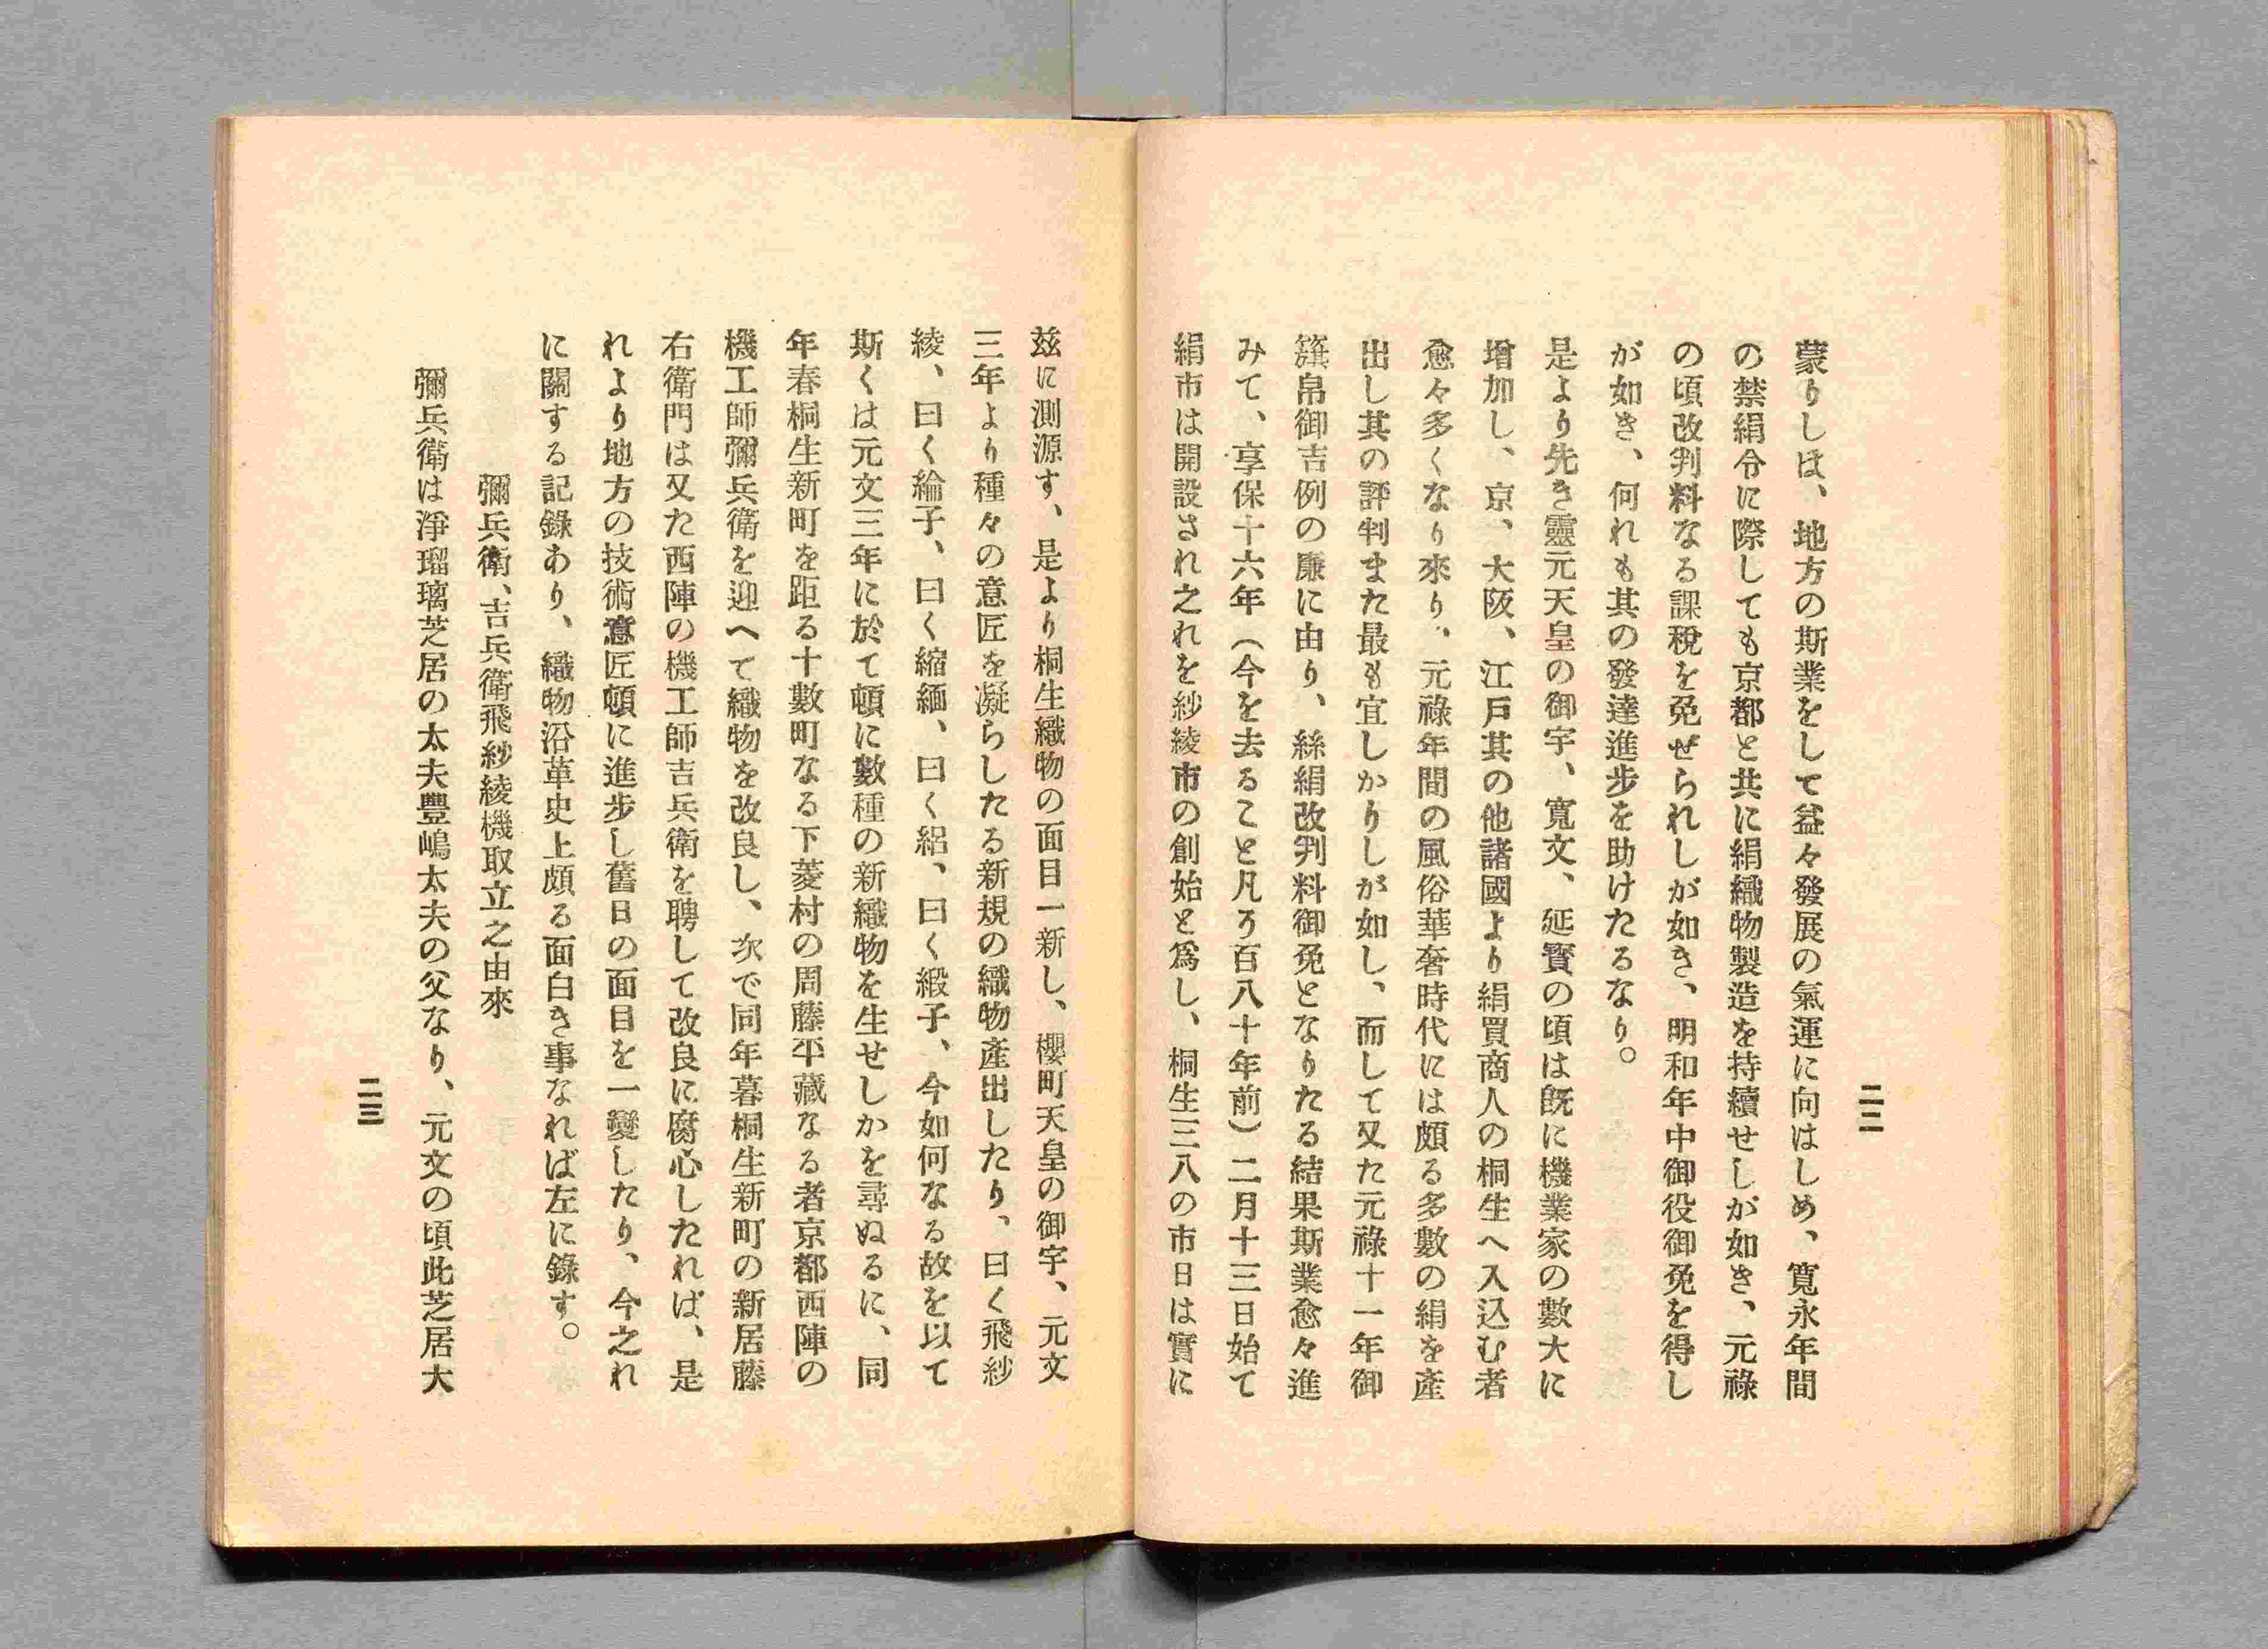 二二
蒙りしは、地方の斯業をして益々發展の氣運に向はしめ、寬永年間
の禁絹令に際しても京都と共に絹織物製造を持續せしが如き、元祿
の頃改判料なる課稅を免ぜられしが如き、明和年中御役御免を得し
が如き、何れも其の發達進步を助けたるなり。
是より先き靈元天皇の御宇、寬文、延寶の頃は旣に機業家の數大に
增加し、京、大阪、江戶其の他諸國より絹買商人の桐生へ入込む者
愈々多くなり來り、元祿年間の風俗華奢時代には頗る多數の絹を產
出し其の評判また最も宜しかりしが如し、而して又た元祿十一年御
籏帛御吉例の廉に由り、絲絹改判料御免となりたる結果斯業愈々進
みて、享保十六年（今を去ること凡ろ百八十年前）二月十三日始て
絹市は開設され之れを紗綾市の創始と爲し、桐生三八の市日は實に
茲に測源す、是より桐生織物の面目一新し、櫻町天皇の御宇、元文
三年より種々の意匠を凝らしたる新規の織物產出したり、曰く飛紗
綾、曰く綸子、曰く縮緬、曰く絽、曰く緞子、今如何なる故を以て
斯くは元文三年に於て頓に數種の新織物を生せしかを尋ぬるに、同
年春桐生新町を距る十數町なる下菱村の周藤平藏なる者京都西陣の
機工師彌兵衛を迎へて織物を改良し、次で同年暮桐生新町の新居藤
右衛門は又た西陣の機工師吉兵衛を聘して改良に腐心したれば、是
れより地方の技術意匠頓に進步し舊日の面目を一變したり、今之れ
に關する記錄あり、織物沿革史上頗る面白き事なれば左に錄す。
彌兵衛、吉兵衛飛紗綾機取立之由來
彌兵衛は淨瑠璃芝居の太夫豐嶋太夫の父なり、元文の頃此芝居大
二三